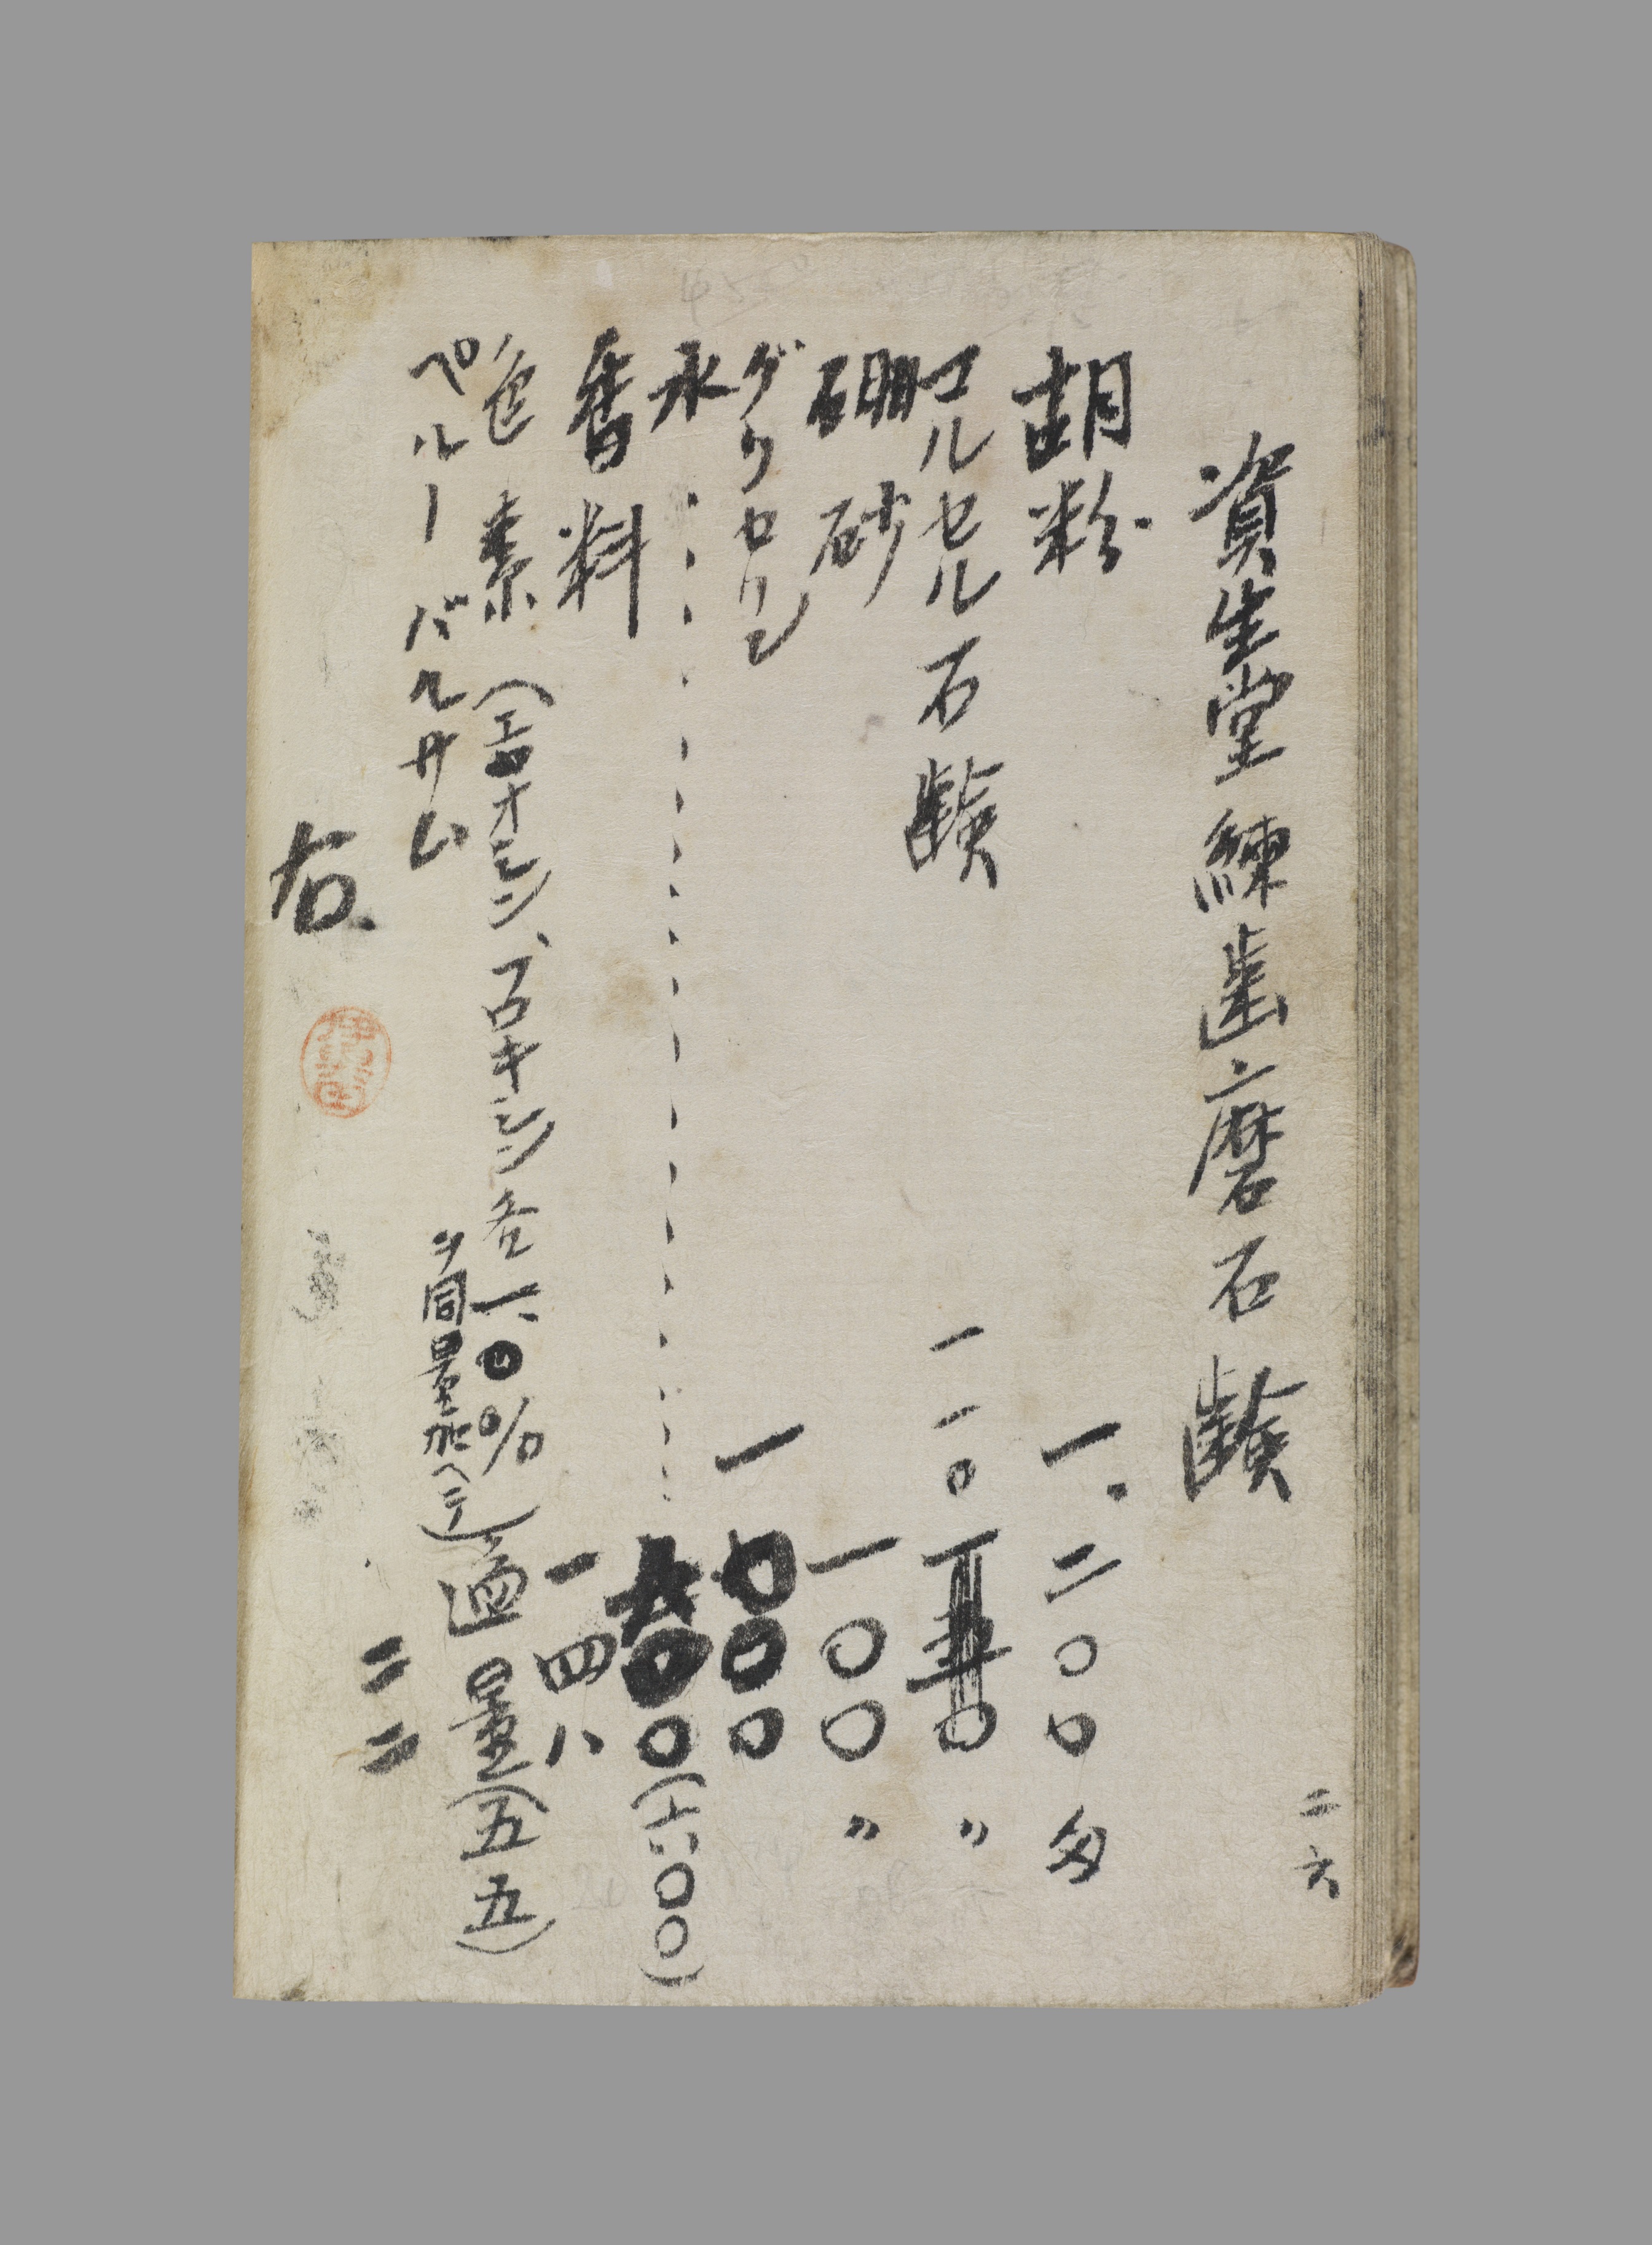 二六
資生堂練歯磨石鹸
胡粉 一.二〇〇匁
マルセル石鹸 一一〇〇〃
硼砂 一〇〇〃
グリセリン 一〇〇〇
水 〇(六〇〇)
香料 一四八
色素(エオシン、フロキシン各一.〇%
ヲ同量加ヘテ)適量(五五)
ペルーバルサム 二二
右.